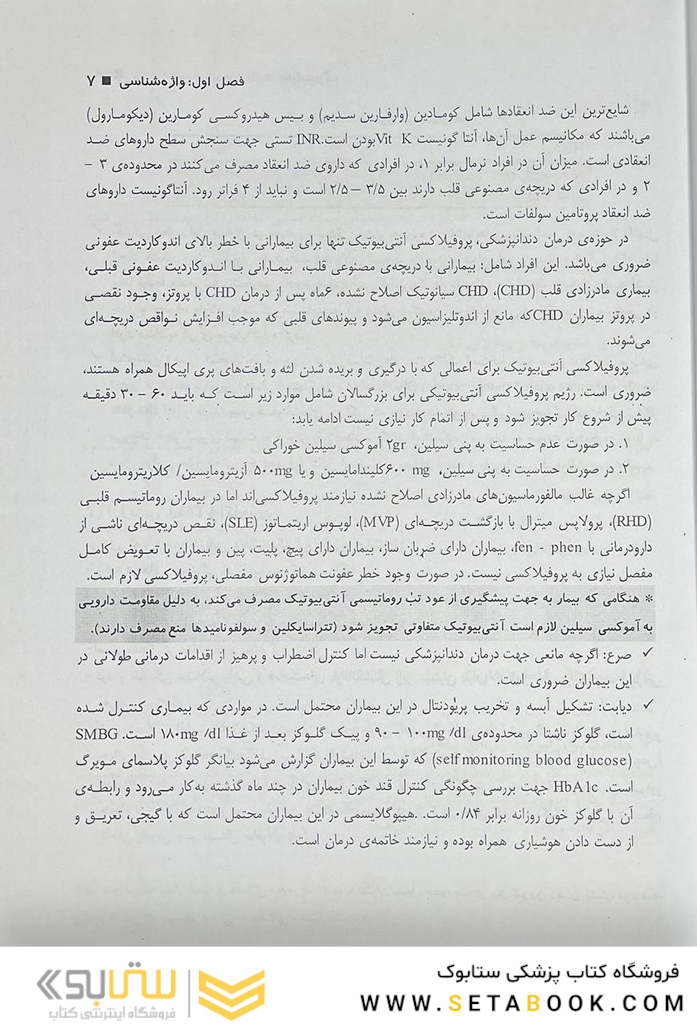 فصل اول: واژه‌شناسی ■ ۷
شایع‌ترین این ضد انعقادها شامل کومادین (وارفارین سدیم) و بیس هیدروکسی کومارین (دیکومارول)
می‌باشند که مکانیسم عمل آن‌ها، آنتا گونیست Vit K بودن است. INR تستی جهت سنجش سطح داروهای ضد
انعقادی است. میزان آن در افراد نرمال برابر ۱، در افرادی که داروی ضد انعقاد مصرف می‌کنند در محدوده‌ی ۳ –
۲ و در افرادی که دریچه‌ی مصنوعی قلب دارند بین ۳/۵ – ۲/۵ است و نباید از ۴ فراتر رود. آنتاگونیست داروهای
ضد انعقاد پروتامین سولفات است.
در حوزه‌ی درمان دندانپزشکی، پروفیلاکسی آنتی‌بیوتیک تنها برای بیمارانی با خطر بالای اندوکاردیت عفونی
ضروری می‌باشد. این افراد شامل: بیمارانی با دریچه‌ی مصنوعی قلب، بیمارانی با اندوکاردیت عفونی قبلی،
بیماری مادرزادی قلب (CHD)، CHD سیانوتیک اصلاح نشده، ۶ماه پس از درمان CHD با پروتز، وجود نقصی
در پروتز بیماران CHD که مانع از اندوتلیزاسیون می‌شود و پیوندهای قلبی که موجب افزایش نواقص دریچه‌ای
می‌شوند.
پروفیلاکسی آنتی‌بیوتیک برای اعمالی که با درگیری و بریده شدن لثه و بافت‌های پری اپیکال همراه هستند،
ضروری است. رژیم پروفیلاکسی آنتی‌بیوتیکی برای بزرگسالان شامل موارد زیر است که باید ۶۰ – ۳۰ دقیقه
پیش از شروع کار تجویز شود و پس از اتمام کار نیازی نیست ادامه یابد:
۱. در صورت عدم حساسیت به پنی سیلین، ۲gr آموکسی سیلین خوراکی
۲. در صورت حساسیت به پنی سیلین، ۶۰۰ mg کلیندامایسین و یا ۵۰۰mg آزیترومایسین/ کلاریترومایسین
اگرچه غالب مالفورماسیون‌های مادرزادی اصلاح نشده نیازمند پروفیلاکسی‌اند اما در بیماران روماتیسم قلبی
(RHD)، پرولاپس میترال با بازگشت دریچه‌ای (MVP)، لوپوس اریتماتوز (SLE)، نقص دریچه‌ای ناشی از
دارودرمانی با fen - phen، بیماران دارای ضربان ساز، بیماران دارای پیچ، پلیت، پین و بیماران با تعویض کامل
مفصل نیازی به پروفیلاکسی نیست. در صورت وجود خطر عفونت هماتوژنوس مفصلی، پروفیلاکسی لازم است.
* هنگامی که بیمار به جهت پیشگیری از عود تب روماتیسمی آنتی‌بیوتیک مصرف می‌کند، به دلیل مقاومت دارویی
به آموکسی سیلین لازم است آنتی‌بیوتیک متفاوتی تجویز شود (تتراسایکلین و سولفونامیدها منع مصرف دارند).
✓ صرع: اگرچه مانعی جهت درمان دندانپزشکی نیست اما کنترل اضطراب و پرهیز از اقدامات درمانی طولانی در
این بیماران ضروری است.
✓ دیابت: تشکیل آبسه و تخریب پریودنتال در این بیماران محتمل است. در مواردی که بیماری کنترل شده
است، گلوکز ناشتا در محدوده‌ی ۹۰ – ۱۰۰mg /dl و پیک گلوکز بعد از غذا ۱۸۰mg /dl است. SMBG
(self monitoring blood glucose) که توسط این بیماران گزارش می‌شود بیانگر گلوکز پلاسمای مویرگ
است. HbA1c جهت بررسی چگونگی کنترل قند خون بیماران در چند ماه گذشته به‌کار می‌رود و رابطه‌ی
آن با گلوکز خون روزانه برابر ۰/۸۴ است. .هیپوگلایسمی در این بیماران محتمل است که با گیجی، تعریق و
از دست دادن هوشیاری همراه بوده و نیازمند خاتمه‌ی درمان است.
فروشگاه کتاب پزشکی ستابوک
WWW.SETABOOK.COM
ستابوک
فروشگاه اینترنتی کتاب